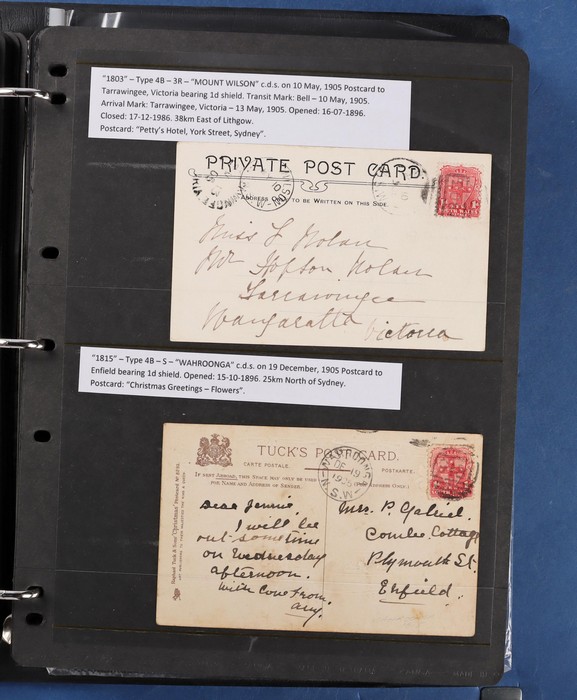 "1803" – Type 4B – 3R – "MOUNT WILSON" c.d.s. on 10 May, 1905 Postcard to
Tarrawingee, Victoria bearing 1d shield. Transit Mark: Bell – 10 May, 1905.
Arrival Mark: Tarrawingee, Victoria – 13 May, 1905. Opened: 16-07-1896.
Closed: 17-12-1986. 38km East of Lithgow.
Postcard: "Petty's Hotel, York Street, Sydney".
PRIVATE POST CARD.
ADDRESS ONLY TO BE WRITTEN ON THIS SIDE.
WILSON
Miss L Nolan
Mr Hopton Nolan
Tarrawingee
Wangaratta Victoria
"1815" – Type 4B – S – "WAHROONGA" c.d.s. on 19 December, 1905 Postcard to
Enfield bearing 1d shield. Opened: 15-10-1896. 25km North of Sydney.
Postcard: "Christmas Greetings – Flowers".
TUCK'S POSTCARD.
CARTE POSTALE.
POSTKARTE.
IF SENT ABROAD, THIS SPACE MAY ONLY BE USED
FOR NAME AND ADDRESS OF SENDER.
(FOR ADDRESS ONLY.)
WAHROONGA
DE 19
1905
N.S.W
Dear Jennie,
I will be
out sometime
on Wednesday
afternoon.
With Love From
Amy.
Mrs. P. Gabriel.
Combo Cottage
Plymouth St.
Enfield.